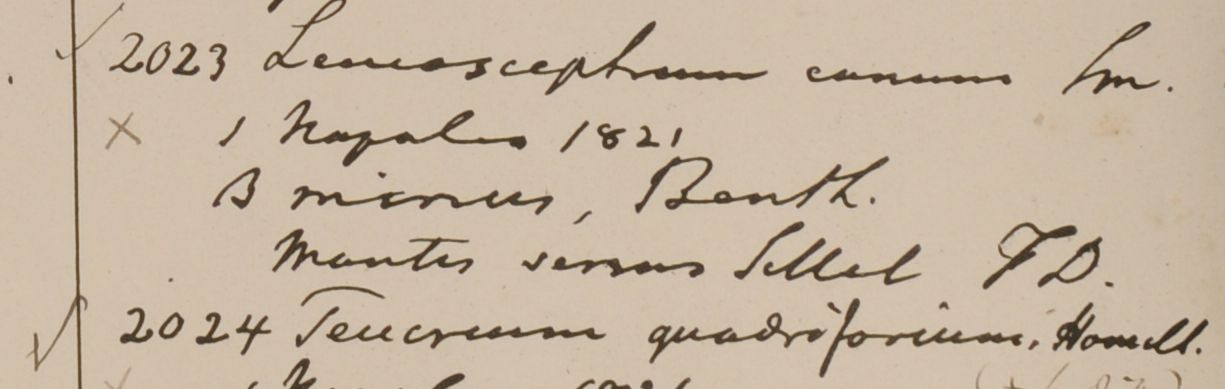 2023 Leucosceptrum canum Sm.
1 Napalia 1821
B minus, Benth.
Montis sinus Sillet F D.
2024 Teucrium quadrifarium, Hamilt.
1821